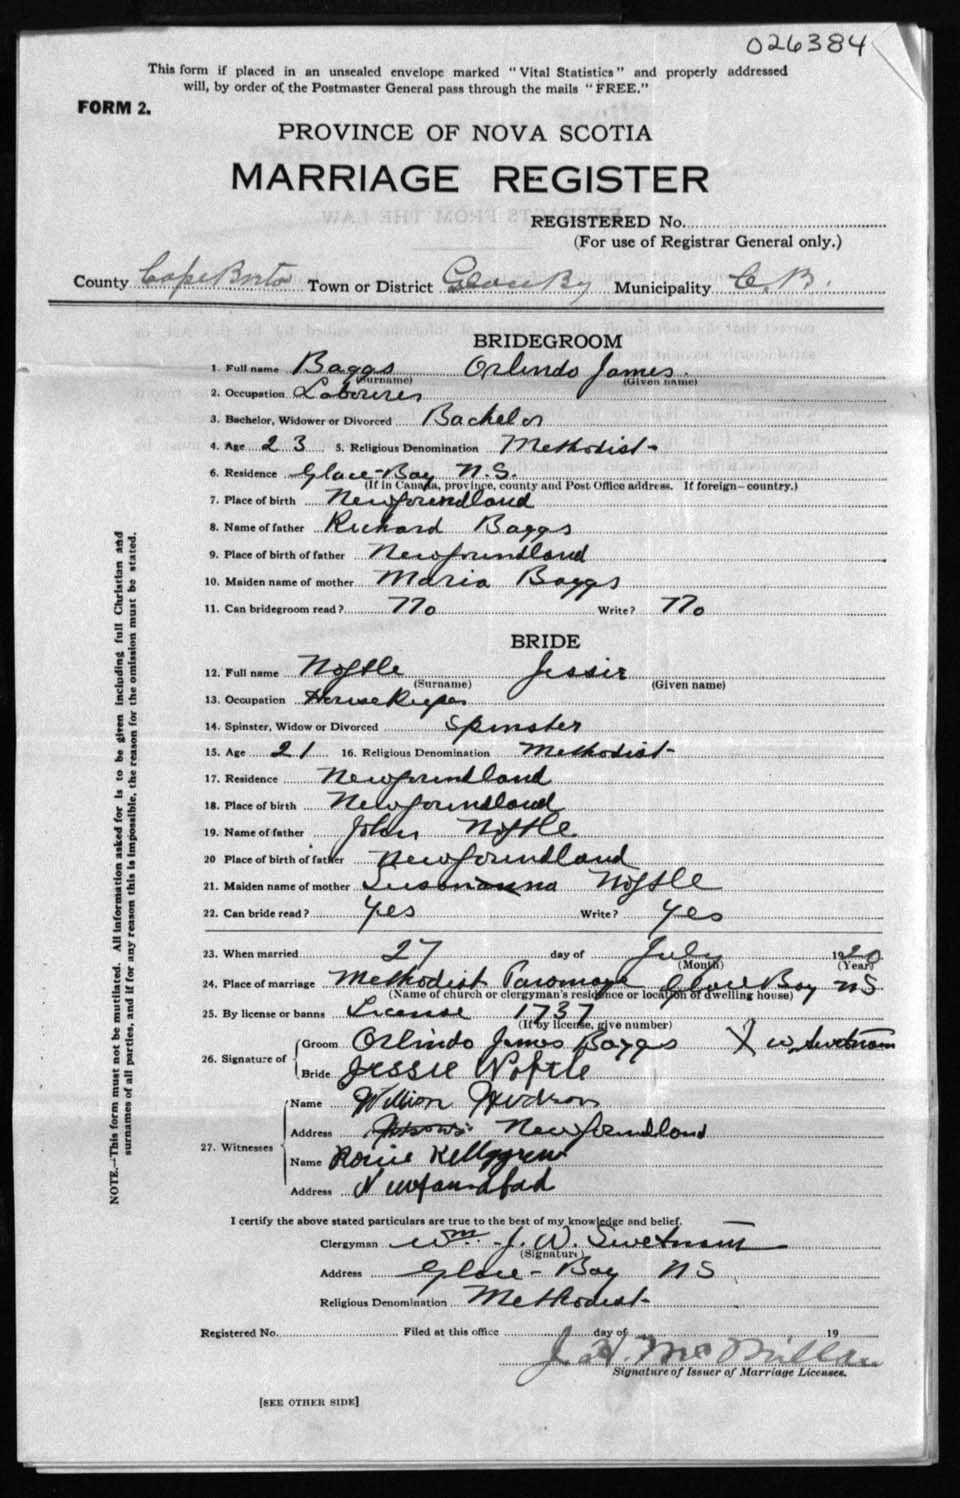 026384
This form if placed in an unsealed envelope marked "Vital Statistics" and properly addressed
will, by order of the Postmaster General pass through the mails "FREE."
FORM 2.
PROVINCE OF NOVA SCOTIA
MARRIAGE REGISTER
REGISTERED No.
(For use of Registrar General only.)
County Cape Breton Town or District Glace Bay Municipality C. B.
BRIDEGROOM
1. Full name Baggs Orlindo James
(Surname) (Given name)
2. Occupation Labourer
3. Bachelor, Widower or Divorced Bachelor
4. Age 23 5. Religious Denomination Methodist
6. Residence Glace-Bay N.S.
(If in Canada, province, county and Post Office address. If foreign—country.)
7. Place of birth Newfoundland
8. Name of father Richard Baggs
9. Place of birth of father Newfoundland
10. Maiden name of mother Maria Baggs
11. Can bridegroom read? No Write? No
BRIDE
12. Full name Noftle Jessie
(Surname) (Given name)
13. Occupation House Keeper
14. Spinster, Widow or Divorced Spinster
15. Age 21 16. Religious Denomination Methodist
17. Residence Newfoundland
18. Place of birth Newfoundland
19. Name of father John Noftle
20 Place of birth of father Newfoundland
21. Maiden name of mother Noftle
22. Can bride read? Yes Write? Yes
23. When married 27 day of July 1920
(Month) (Year)
24. Place of marriage Methodist Glace Bay NS
(Name of church or clergyman's residence or location of dwelling house)
25. By license or banns License 1737
(If by license, give number)
26. Signature of Groom Orlindo James Baggs X W Swetnam
Bride Jessie Noftle
27. Witnesses Name William Hudson
Address Newfoundland
Name Rosie
Address
I certify the above stated particulars are true to the best of my knowledge and belief.
Clergyman Wm. J. W. Swetnam
(Signature)
Address Glace-Bay NS
Religious Denomination Methodist
Registered No. Filed at this office day of 19
J. H. McMillan
Signature of Issuer of Marriage Licenses.
[SEE OTHER SIDE]
NOTE.—This form must not be mutilated. All informations asked for is to be given including full Christian and
surnames of all parties, and if for any reason this is impossible, the reason for the omission must be stated.